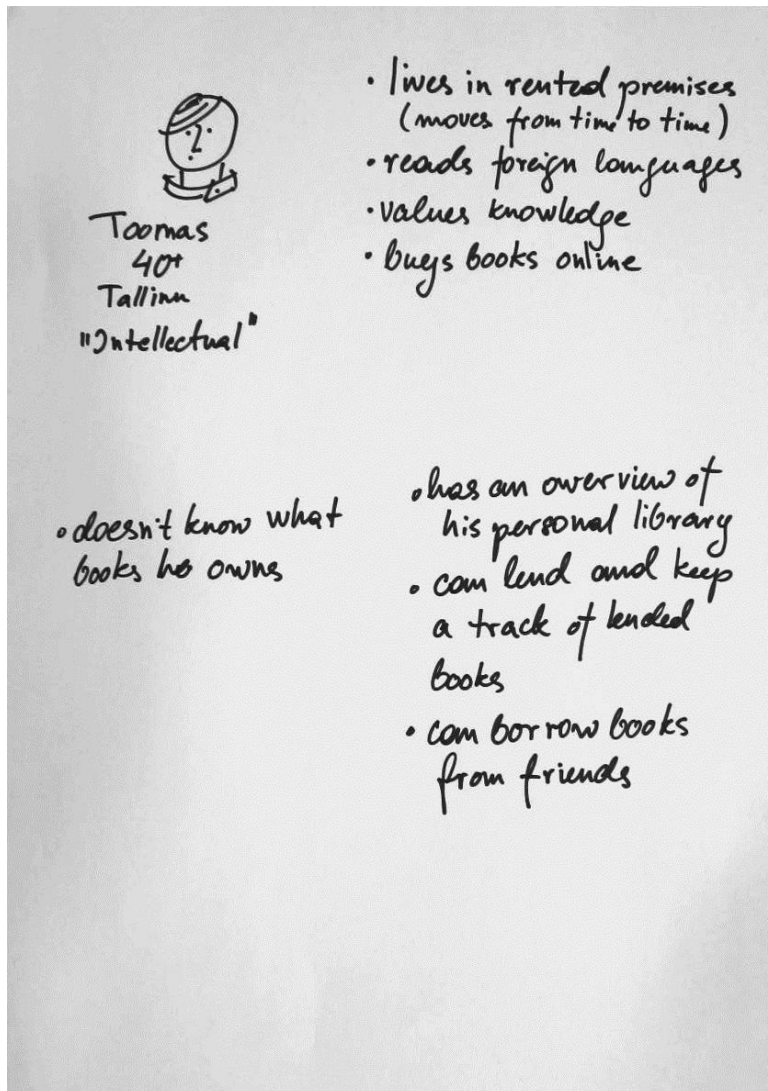 Toomas
40+
Tallinn
"Intellectual"
• lives in rented premises
(moves from time to time)
• reads foreign languages
• values knowledge
• buys books online
• doesn't know what
books he owns
• has an overview of
his personal library
• can lend and keep
a track of lended
books
• can borrow books
from friends